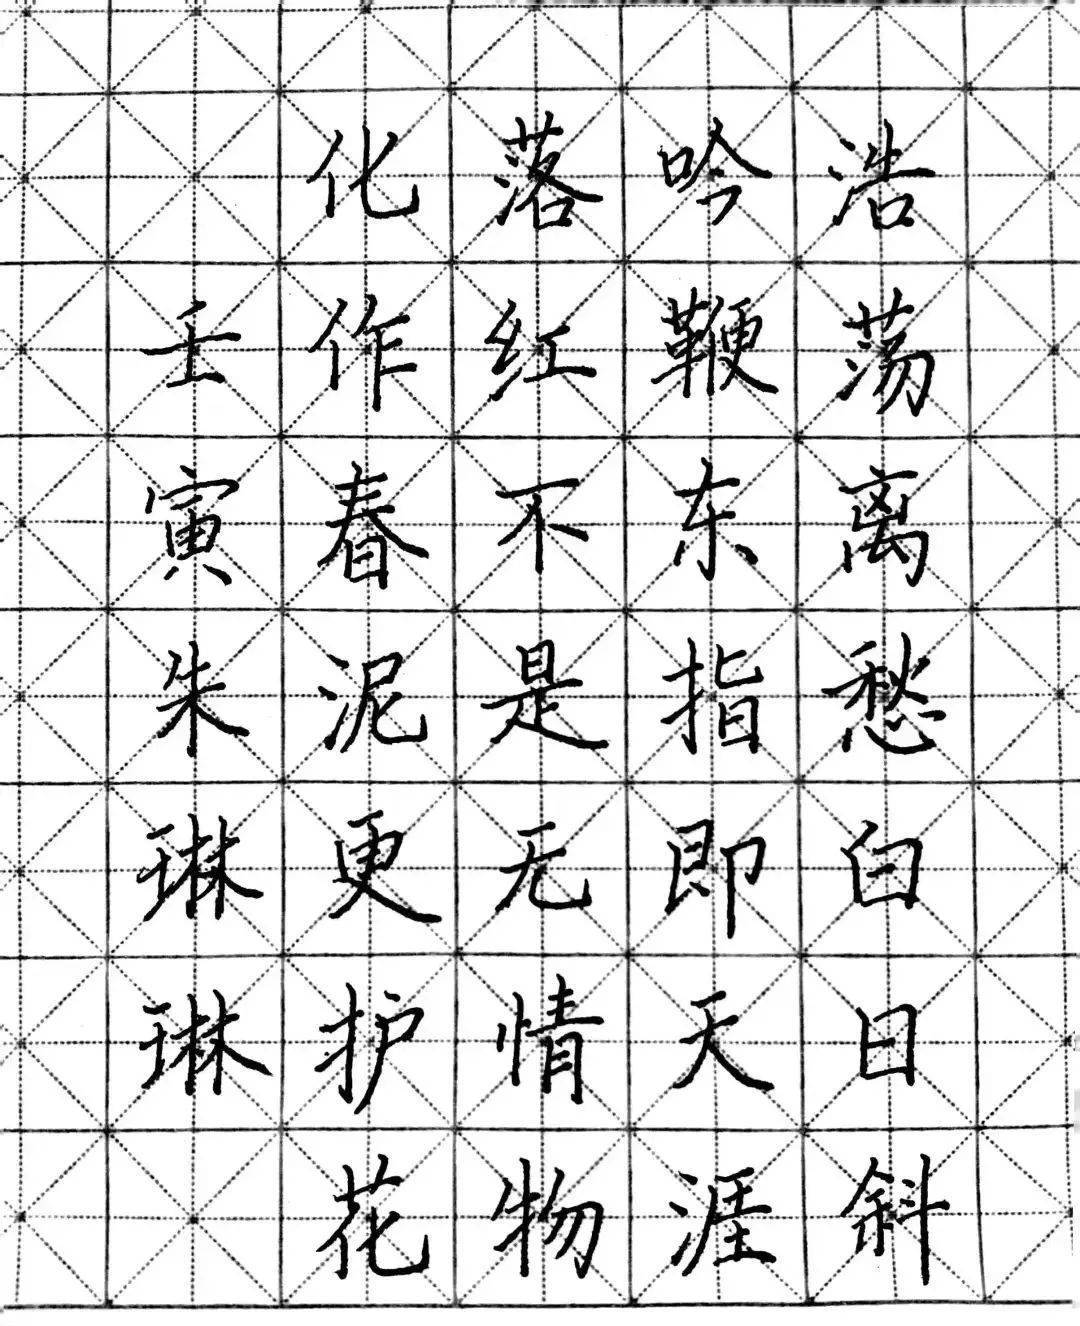 浩荡离愁白日斜
吟鞭东指即天涯
落红不是无情物
化作春泥更护花
壬寅朱琳琳